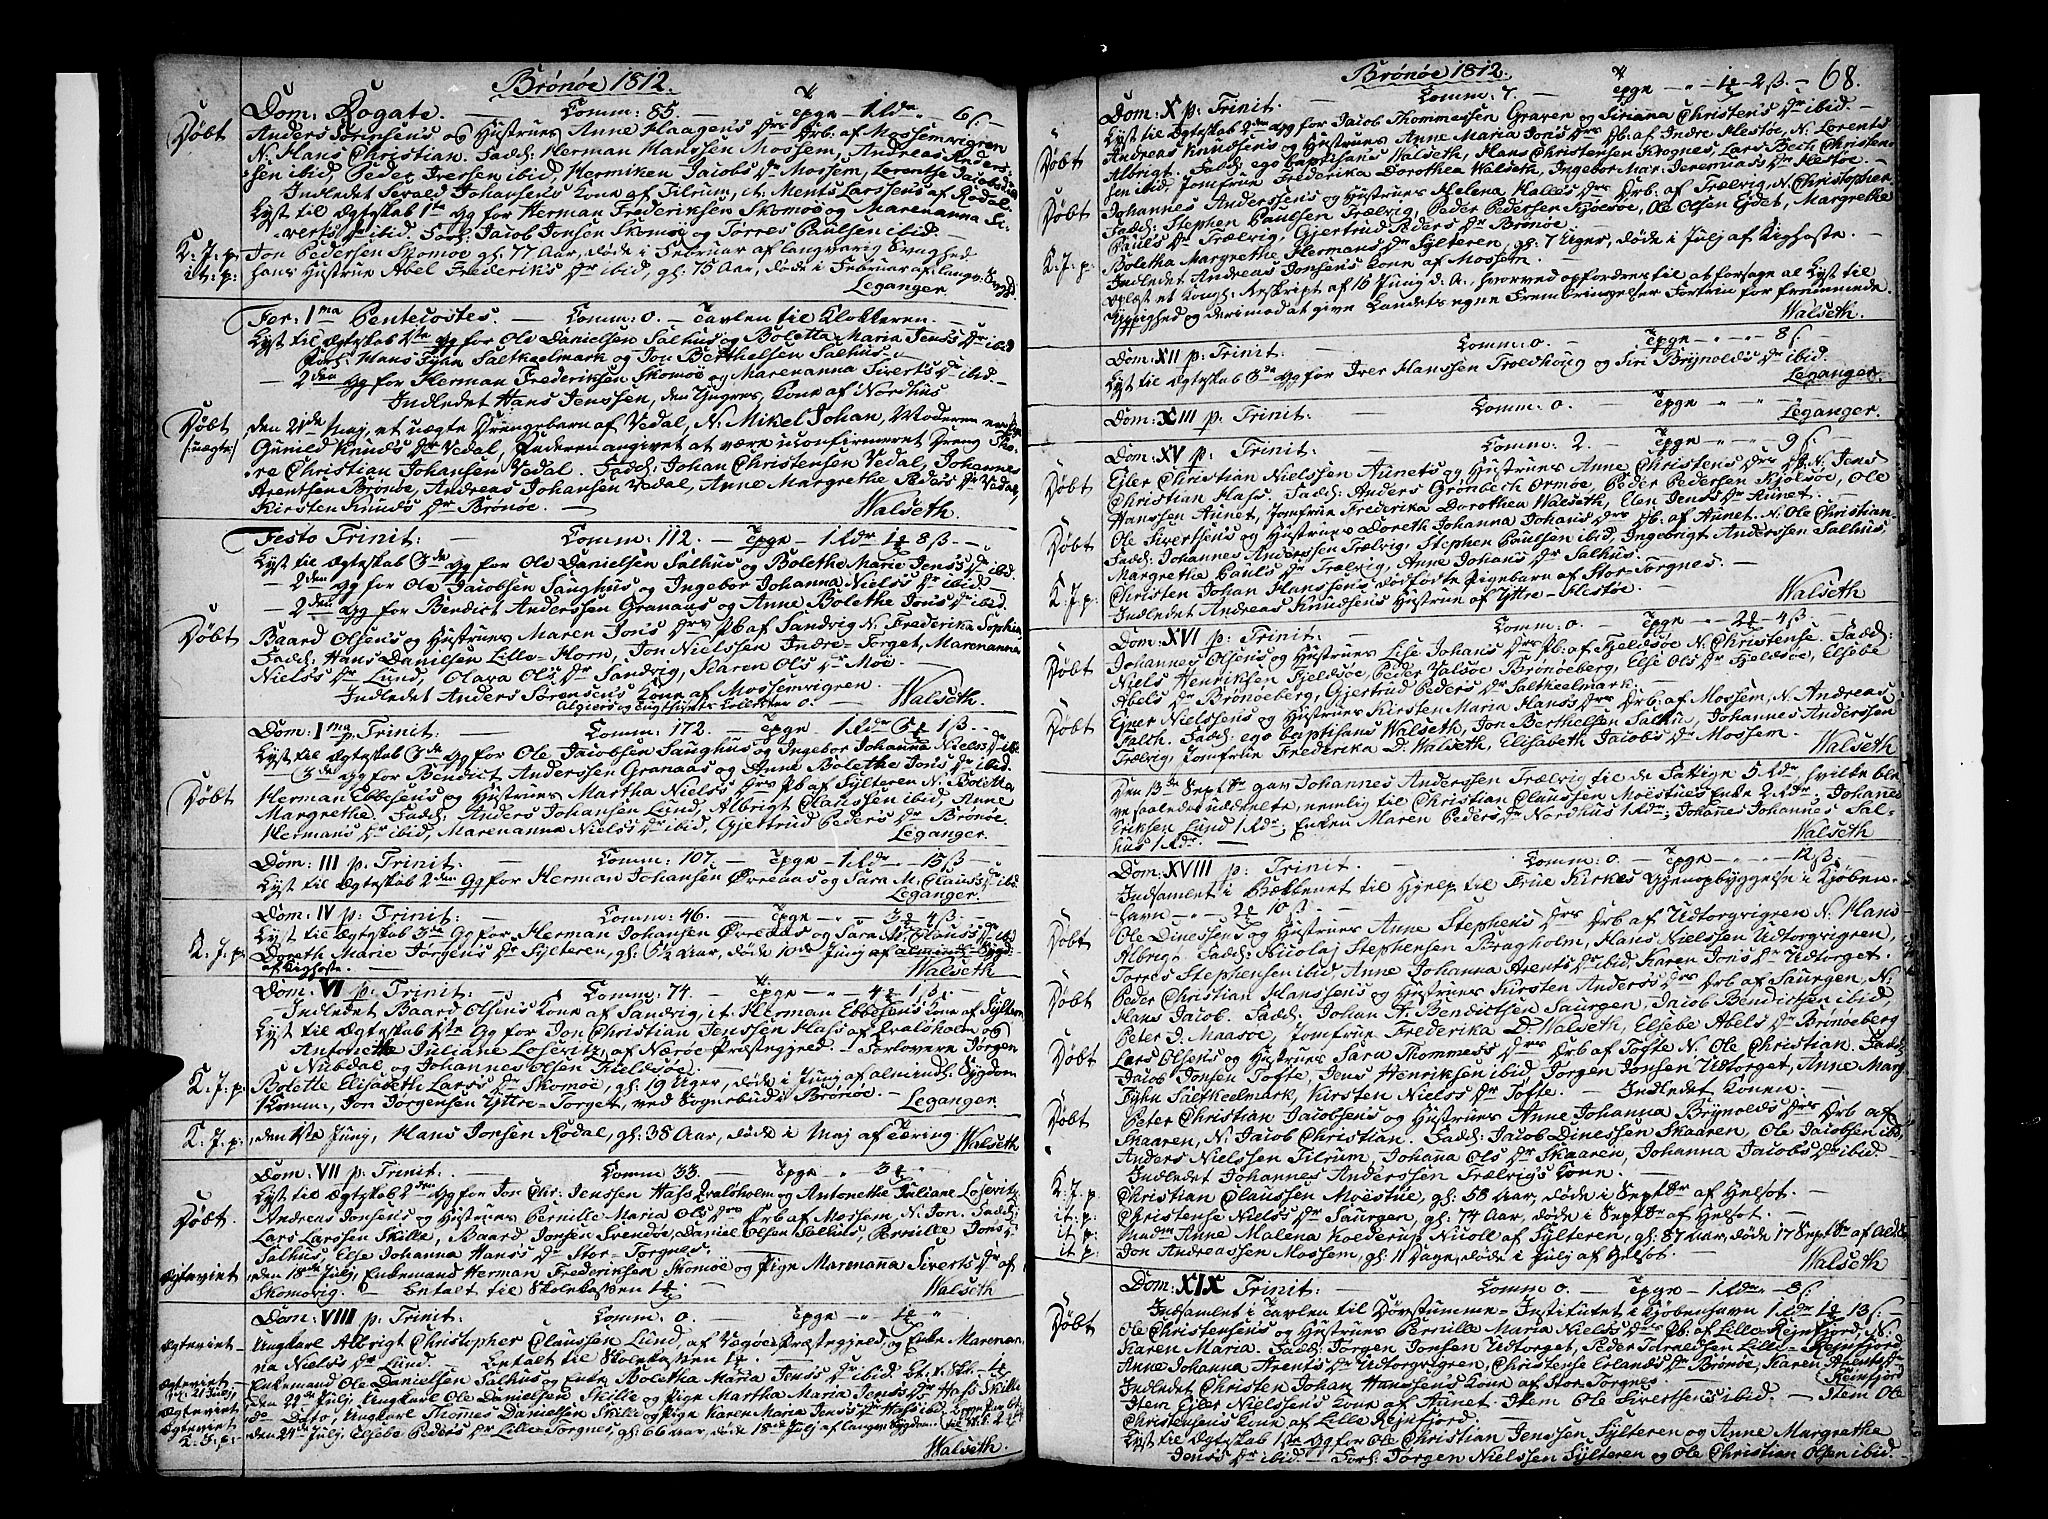 Brønøe 1812.
Dom: Rogate. — Comm: 85. — Tpge — 1 Rdr " 6 ß
Døbt Anders Sørensens og Hustrues Anne Haagens Drs Drb. af Mossemvigren
N: Hans Christian. Fadd: Herman Hanssen Mossem, Andreas Anders-
sen ibid, Peder Iversen ibid, Hermiken Jacobs Dr Mossem, Lorentse Jacobs Dr ibid
Indledet Sevald Johansens Kone af Tilrum, it. Ments Larssens af Rodal.
Lyst til Ægteskab 1te Gg for Herman Frederiksen Skomoe og Marenanna Si-
verts Dr ibid. Forl: Jacob Jensen Skomoe og Torres Paulsen ibid. —
K: J: p: Jon Pedersen Skomoe gl: 77 Aar, døde i Februar af langvarig Svaghed
it: p: Hans Hustrue Abel Frederiks Dr ibid, gl: 75 Aar, døde i Februar af langv: Svagh
Leganger.
Fer: 1ma Pentecostes. — Comm: 0. — Tavlen til Klokkeren. —
Lyst til Ægteskab 1te Gg for Ole Danielsen Salhus og Boletta Maria Jenss Dr ibid
Forl: Hans Fyhn Saltkeelmark og Jon Berthelsen Salhus. —
— 2den Gg for Herman Frederiksen Skomoe og Marenanna Siverts Dr ibid. —
Indledet Hans Jenssen, den Yngres, Kone af Nordhus
Døbt den 21de Maj, et uægte Drengebarn af Vedal, N: Mikel Johan, Moderen er Pige
/:uægte:/ Gunild Knuds Dr Vedal, Faderen angivet at være uconfirmeret Dreng Tho-
re Christian Johansen Vedal. Fadd: Johan Christensen Vedal, Johannes
Arentsen Brønøe, Andreas Johansen Vedal, Anne Margrethe Peders Dr Vedal,
Kirsten Knuds Dr Brønøe. — Walseth.
Festo Trinit: — Comm: 112. — Tpge — 1 Rdr 1 8 ß —
Lyst til Ægteskab 3de Gg for Ole Danielsen Salhus og Bolethe Marie Jenss Dr ibid.
— 2den Gg for Ole Jacobsen Saughus og Ingebor Johanna Niels Dr ibid
— 2den Gg for Bendict Anderssen Granaas og Anne Bolethe Jons Dr ibid.
Døbt Baard Olsens og Hustrues Maren Jons Drs Pb af Sandvig N: Frederika Sophia
Fadd: Hans Danielsen Lille-Horn, Jon Nielssen Indre-Torget, Marenanna
Nielss Dr Lund, Olava Ols Dr Sandvig, Karen Ols Dr Moe. —
Indledet Anders Sørensens Kone af Mossemvigren.
Algiers og Tugthusets Collecter 0. Walseth.
Dom: 1ma p: Trinit: — Comm: 172. — Tpge — 1 Rdr 5 1 ß
Lyst til Ægteskab 3de Gg for Ole Jacobsen Saughus og Ingebor Johanna Niels Dr ib
3de Gg for Bendict Anderssen Granaas og Anne Bolethe Jons Dr ibid.
Døbt Herman Ebbesens og Hustrues Martha Niels Drs Pb af Sylteren N: Boletha
Margrethe. Fadd: Anders Johansen Lund, Albrigt Claussen ibid, Anne
Hermans Dr ibid, Marenanna Niels Dr ibid, Gjertrud Peders Dr Brønøe.
Leganger.
Dom: III p: Trinit: — Comm: 107. — Tpge — 1 Rdr " 13 ß —
Lyst til Ægteskab 2den Gg for Herman Johansen Ørreaas og Sara M. Clauss Dr ibi
Leganger.
Dom: IV p: Trinit: — Comm: 46. — Tpge — " 3 4 ß —
Lyst til Ægteskab 3de Gg for Herman Johansen Ørreaas og Sara M. Clauss Dr ibid
K: J: p: Doreth Marie Jørgens Dr Sylteren, gl: 6½ Aar, døde 10de Junij af almindl: Sygd:
af Kighoste. — Walseth
Dom: VI p: Trinit: — Comm: 74. — Tpge — " 4 1 ß —
Indledet Baard Olsens Kone af Sandvig, it. Herman Ebbesens Kone af Syltern
Lyst til Ægteskab 1te Gg for Jon Christian Jenssen Hass af Hvalsholm og
Antonethe Juliane Loseritz, af Nærøe Præstegjeld. — Forlovere Jørgen
Nubdal og Johannes Olsen Fieldsøe. —
K: J: p: Bolette Elisabeth Larss Dr Skomoe, gl: 19 Uger, døde i Junij af almindl: Sygdom
1 Comm:, Jon Jørgensen Yttre-Torget, ved Sognebud i Brønøe. — Leganger.
K: J: p: den 1te Junij, Hans Jonsen Rodal, gl: 38 Aar, døde i Maj af Tæring Walseth
Dom: VII p: Trinit: — Comm 33. — Tpge " 3 —
Lyst til Ægteskab 2den Gg for Jon Chr: Jenssen Hass Hvalsholm og Antonethe Juliane Loseritz
Døbt. Andreas Jonsens og Hustrues Pernille Maria Ols Drs Drb af Mossem, N: Jon. Fadd:
Lars Larssen Skille, Baard Jonsen Svendøe, Daniel Olsen Salhus, Pernille Jons Dr
Salhus, Else Johanna Hanss Dr Stor-Torgnes.
Ægteviet den 18de Julj, Enkemand Herman Frederiksen Skomoe og Pige Marenanna Siverts Dr af
Skomovig. — Betalt til Skolekassen 1 Walseth
Dom: VIII p: Trinit: — Comm: 0. — Tpge — " 1 "
Ægteviet Ungkarl Albrigt Christopher Claussen Lund, af Vegøe Præstegjeld, og Enke Marenan-
na Niels Dr Lund. — Betalt til Skolekassen 1 —
Ægteviet Enkemand Ole Danielsen Salhus og Enke Boletha Maria Jenss Dr ibid. Bt. t. Skk: 1
Ægteviet den 21de Julj, Ungkarl Ole Danielsen Skille og Pige Martha Maria Jenss Dr Hass Skille
Ægteviet do Dato, Ungkarl Thomes Danielsen Skille og Pige Karen Marie Jens Dr Hass ibid.
K: J: p: den 24de Julj Elsebe Peders Dr Lille-Torgnes, gl: 66 Aar, døde 18de Julj af langv: Sygdom.
Walseth
Brønøe 1812. 68.
Dom: X p: Trinit. — Comm: 7. — Tpge — " 1 2 ß. —
Lyst til Ægteskab 2den Gg for Jacob Thommessen Graven og Siriana Christens Dr ibid.
Døbt Andreas Knudsens og Hustrues Anne Maria Jons Drs Pb: af Indre-Hestøe, N: Lorents
Albrigt. Fadd: ego baptisans Walseth, Hans Christensen Krognes, Lars Bech Christen-
sen ibid, Jomfrue Frederika Dorothea Walseth, Ingebor Mar: Jeremias Dr Hestøe. —
Døbt Johannes Anderssens og Hustrues Helena Halles Drs Drb: af Trælvig, N: Christopher.
Fadd: Stephen Paulsen Trælvig, Peder Pedersen Kjølsøe, Ole Olsen Eidet, Margrethe
Pauls Dr Trælvig, Gjertrud Peders Dr Brønøe
K: J: p: Boletha Margrethe Hermans Dr Sylteren, gl: 7 Uger, døde i Julj af Kighoste. —
Indledet Andreas Jonsens Kone af Mossem. —
Oplæst et Kongl: Reskript af 16 Junj d. A., hvorved opfordres til at forsage al Lyst til
Yppighed og derimod at give Landets egne Frembringelser Fortrin for fremmede.
Walseth.
Dom: XII p: Trinit: — Comm: 0. — Tpge — " — 8 ß
Lyst til Ægteskab 3de Gg for Iver Hanssen Troldhoug og Siri Brynolds Dr ibid.
Leganger.
Dom: XIII p: Trinit: — Comm: 0. — Tpge — " — " Leganger.
Dom: XV p: Trinit: — Comm: 2. — Tpge — " — 9 ß. —
Døbt Ejler Christian Nielssen Aunets og Hustrues Anne Christens Drs Db. N: Jens
Christian Hass. Fadd: Anders Grønbech Ormøe, Peder Pedersen Kjølsøe, Ole
Hanssen Aunet, Jomfrue Frederika Dorothea Walseth, Elen Jens Dr Aunet. —
Døbt Ole Sivertsens og Hustrues Doreth Johanna Johans Drs Db: af Aunet. N: Ole Christian.
Fadd: Johannes Anderssen Trælvig, Stephen Paulsen ibid, Ingebrigt Anderssen Salhus,
Margrethe Pauls Dr Trælvig, Anne Johans Dr Salhus.
K: J: p: Christen Johan Hanssens dødfødte Pigebarn af Stor-Torgnes. —
Indledet Andreas Knudsens Hustrue af Yttre-Hestøe. — Walseth
Dom: XVI p: Trinit: — Comm: 0. — Tpge — " 2 4 ß —
Døbt Johannes Olsens og Hustrues Lise Johans Drs Pb: af Fjeldsøe N: Christense. Fadd:
Niels Henriksen Fjeldsøe, Peder Valsøe Brønøeberg, Else Ols Dr Fjeldsøe, Elsebe
Abels Dr Brønøeberg, Gjertrud Peders Dr Saltkeelmark. —
Døbt Ejner Nielssens og Hustrues Kirsten Maria Hanss Drs Drb: af Mossem, N: Andreas
Falch. Fadd: ego baptisans Walseth, Jon Berthelsen Salhus, Johannes Anderssen
Trælvig, Jomfrue Frederika D. Walseth, Elisabeth Jacobs Dr Mossem. —
Walseth
Den 13de Septbr gav Johannes Anderssen Trælvig til de Fattige 5 Rdr, hvilke ble-
ve saaledes uddeelte, nemlig til Christian Claussen Moesties Enke 2 Rdr, Johanes
Eriksen Lund 1 Rdr; Enken Maren Peders Dr Nordhus 1 Rdr; Johanes Johannes Sal-
hus 1 Rdr. — Walseth
Dom: XVIII p: Trinit: — Comm 0. — Tpge — " — 12 ß. —
Indsamlet i Bækkenet til Hjelp til Frue Kirkes Gjenopbyggelse i Kjøben-
havn — " 2 10 ß —
Døbt Ole Dinessens og Hustrues Anne Stephens Drs Drb af Udtorgvigren N: Hans
Albrigt. Fadd: Nicolaj Stephensen Bragholm, Hans Nielssen Udtorgvigren,
Torres Stephensen ibid, Anne Johanna Arents Dr ibid, Karen Jons Dr Udtorget.
Døbt Peder Christian Hanssens og Hustrues Kirsten Anderss Drs Drb af Saurgen, N:
Hans Jacob. Fadd: Johan A. Bendictsen Saurgen, Jacob Bendictsen ibid,
Peter D. Maasøe, Jomfrue Frederika D. Walseth, Elsebe Abels Dr Brønøeberg
Døbt Lars Olsens og Hustrues Sara Thommess Drs Drb af Tofte N: Ole Christian. Fadd:
Jacob Jonsen Tofte, Jens Henriksen ibid Jørgen Jonsen Udtorget, Anne Marg:
Fyhn Saltkeelmark, Kirsten Niels Dr Tofte. — Indledet Konen. —
Døbt Peter Christian Jacobsens og Hustrues Anne Johanna Brynolds Drs Drb af
Skaaren, N: Jacob Christian. Fadd: Jacob Dinessen Skaaren, Ole Jacobsen ibid,
Anders Nielssen Tilrum, Johana Ols Dr Skaaren, Johanna Jacobs Dr ibid. —
Indledet Johannes Anderssen Trælvigs Kone. —
K: J: p: Christian Claussen Moestue, gl: 58 Aar, døde i Septbr af Helsot. —
it: p: Christense Niels Dr Saurgen, gl: 74 Aar, døde i Septbr af Helsot. —
it: p: Mad: Anne Malena Kolderup Nicoll af Sylteren, gl: 87 Aar, døde 17 Septbr af Alder
it p: Jon Andreassen Mossem, gl: 11 Dage, døde i Julj af Helsot. — Walseth
Dom: XIX Trinit: — Comm 0. — Tpge — 1 Rdr — 8 ß.
Indsamlet i Tavlen til Døvstumme-Institutet i Kjøbenhavn 1 Rdr 1 13 ß. —
Døbt Ole Christensens og Hustrues Pernille Maria Niels Drs Pb. af Lille-Rejnfjord, N:
Karen Maria. Fadd: Jørgen Jonsen Udtorget, Peder Tarnedsen Lille-Rejnfjord
Anne Johanna Arents Dr Udtorgvigren, Christense Erlands Dr Brønøe, Karen Arents Dr
Reinfjord
Indledet Christen Johan Hanssens Kone af Stor-Torgnes
Item Ejler Nielssens Kone af Aunet. Item Ole Sivertsens ibid. — Item Ole
Christensens Kone af Lille Rejnfjord. —
Lyst til Ægteskab 1te Gg for Ole Christian Jenssen Sylteren og Anne Margrethe
Jens Dr ibid. — Forl: Jørgen Nielssen Sylteren og Ole Christian Olsen ibid.